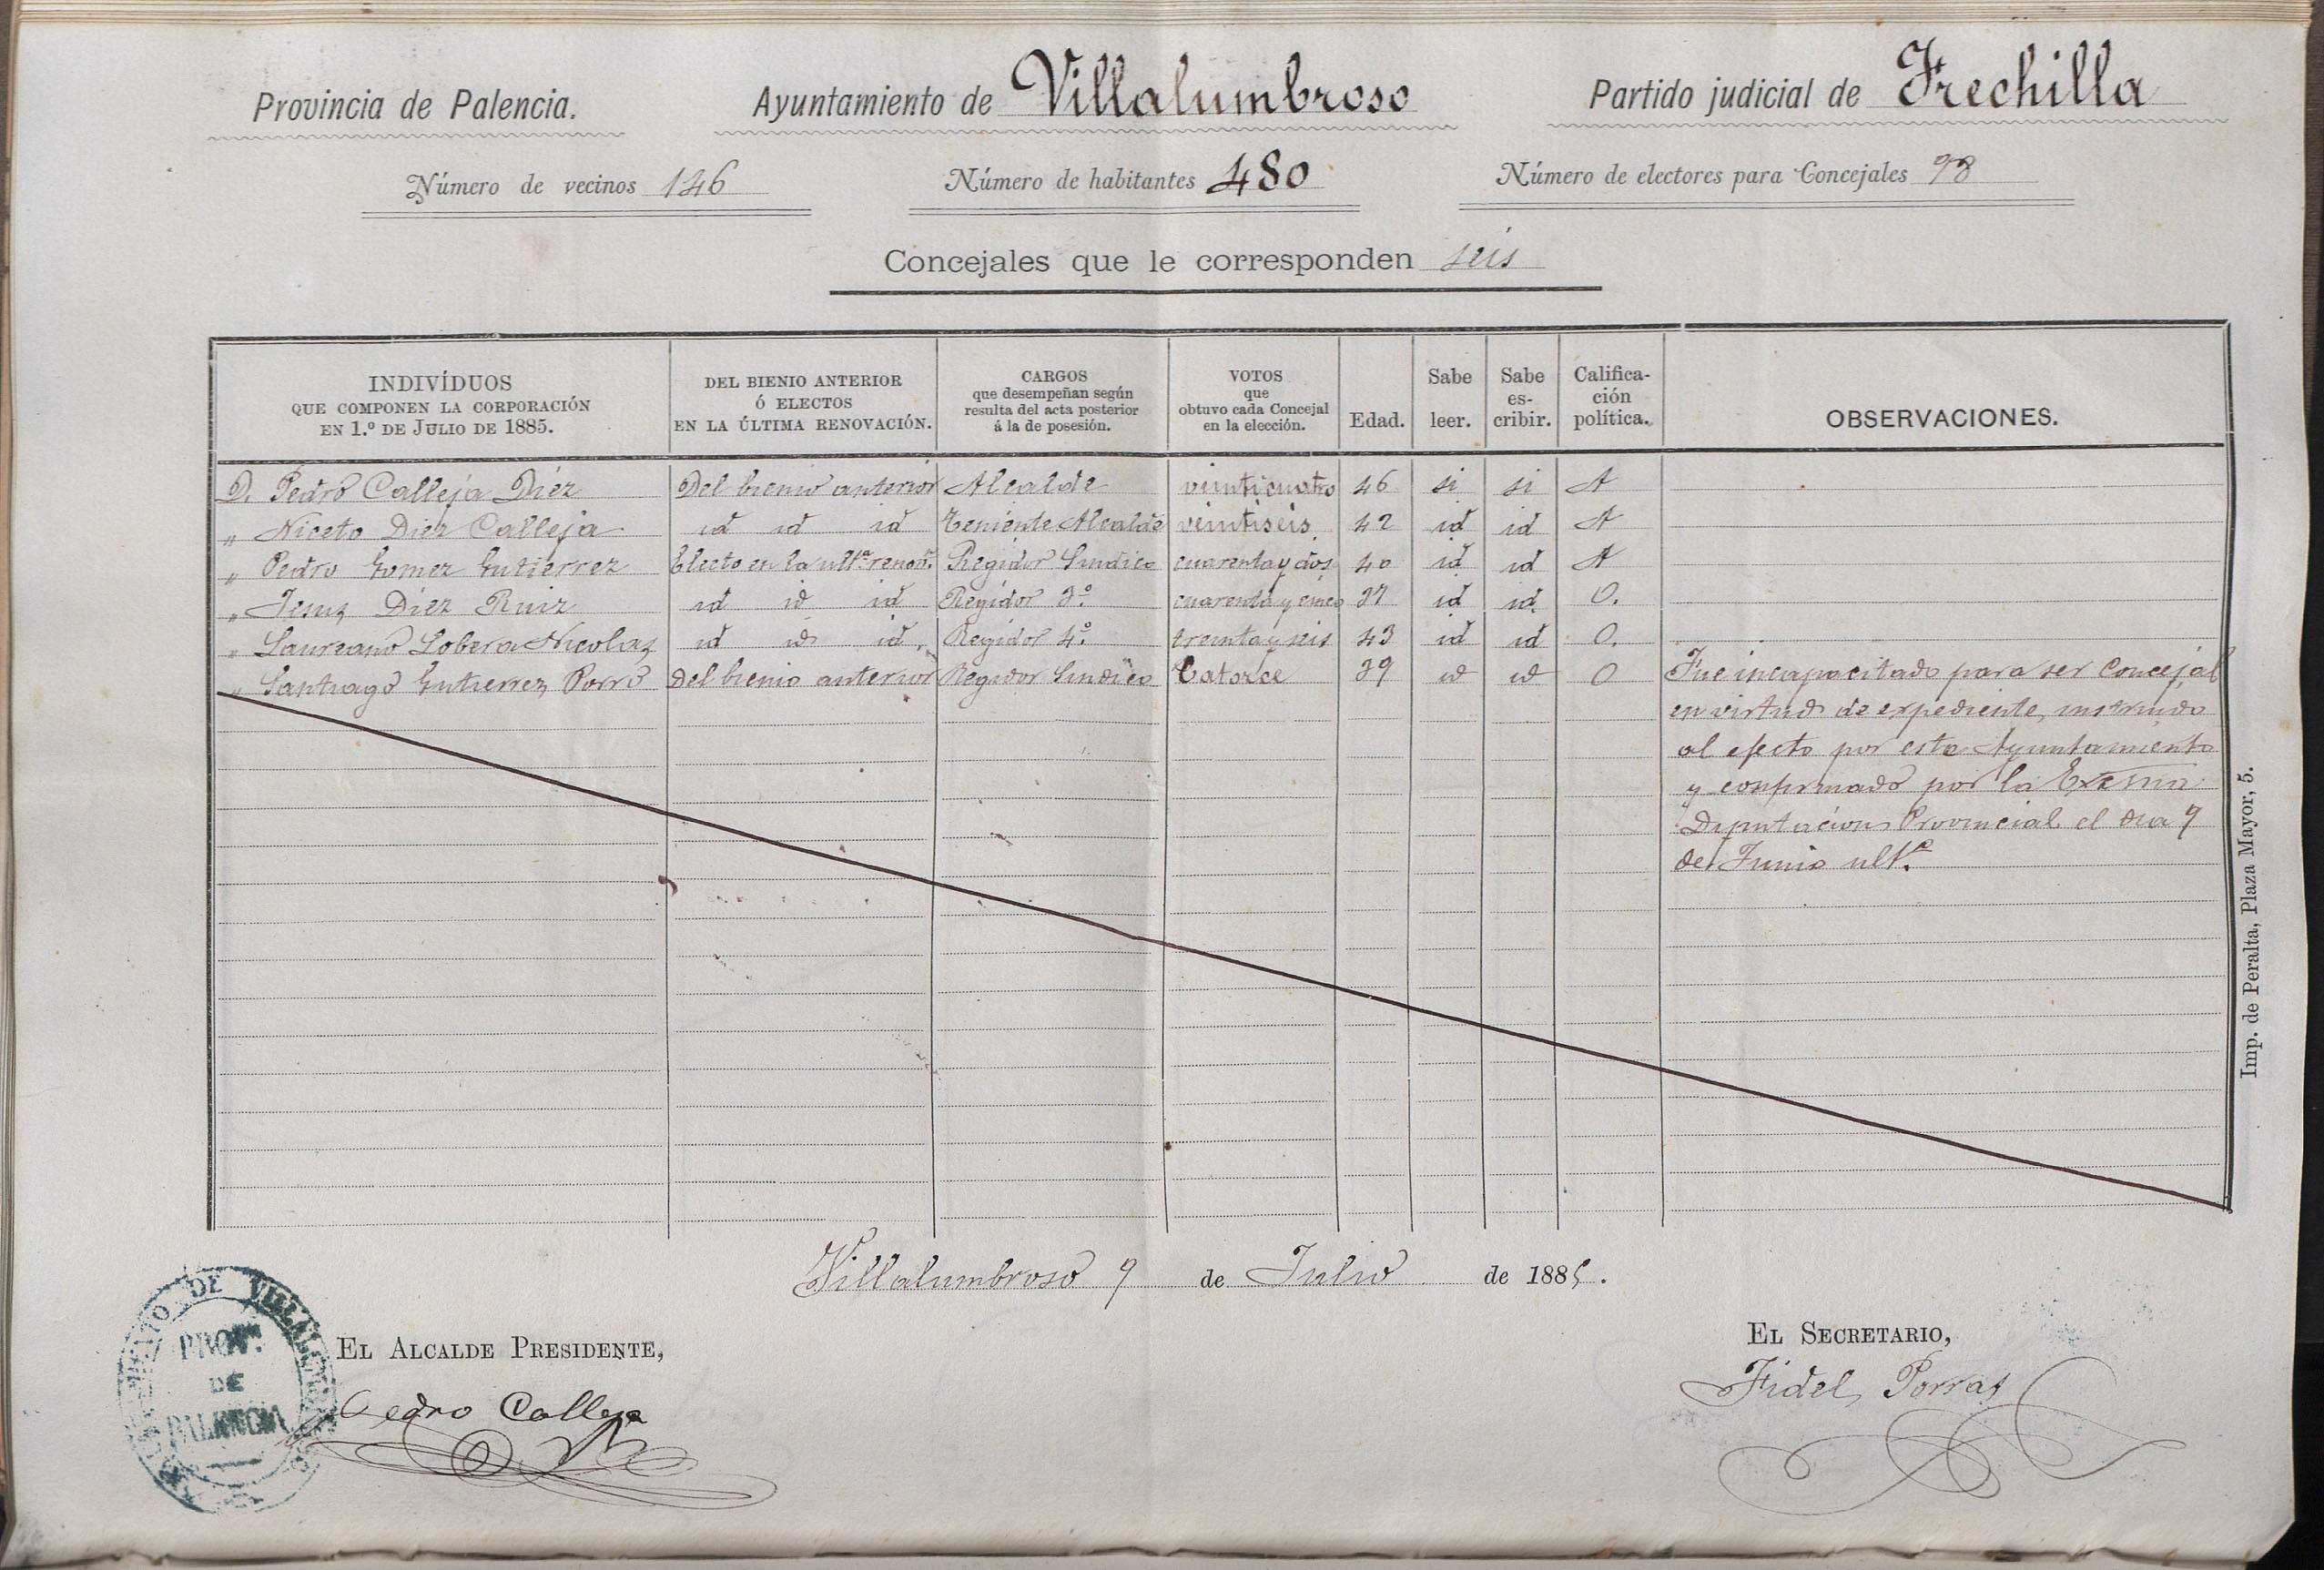 Provincia de Palencia. Ayuntamiento de Villalumbroso Partido judicial de Frechilla
Número de vecinos 146 Número de habitantes 480 Número de electores para Concejales 98
Concejales que le corresponden seis
INDIVÍDUOS QUE COMPONEN LA CORPORACIÓN EN 1.º DE JULIO DE 1885. DEL BIENIO ANTERIOR Ó ELECTOS EN LA ÚLTIMA RENOVACIÓN. CARGOS que desempeñan según resulta del acta posterior á la de posesión. VOTOS que obtuvo cada Concejal en la elección. Edad. Sabe leer. Sabe es-cribir. Califica-ción política. OBSERVACIONES.
D. Pedro Calleja Diez Del bienio anterior Alcalde veinticuatro 46 si si A
" Niceto Diez Calleja id id id Teniente Alcalde veintiseis 42 id id A
" Pedro Gomez Gutierrez Electo en la ultª renovn. Regidor Sindico cuarenta y dos 40 id id A
" Jesus Diez Ruiz id id id Regidor 3.º cuarenta y cinco 27 id id. O.
" Laureano Lobera Nicolas id id id. Regidor 4.º treinta y seis 43 id id O.
" Santiago Gutierrez Porro Del bienio anterior Regidor Sindico Catorce 39 id id O Fue incapacitado para ser Concejal
en virtud de expediente, instruido
al efecto por este Ayuntamiento
y confirmado por la Excma
Diputacion Provincial el dia 9
de Junio ultº.
Imp. de Peralta, Plaza Mayor, 5.
Villalumbroso 9 de Julio de 1885.
EL ALCALDE PRESIDENTE, EL SECRETARIO,
Pedro Calleja Fidel Porras
DE VILLALUMBROSO
PROV.
DE
PALENCIA